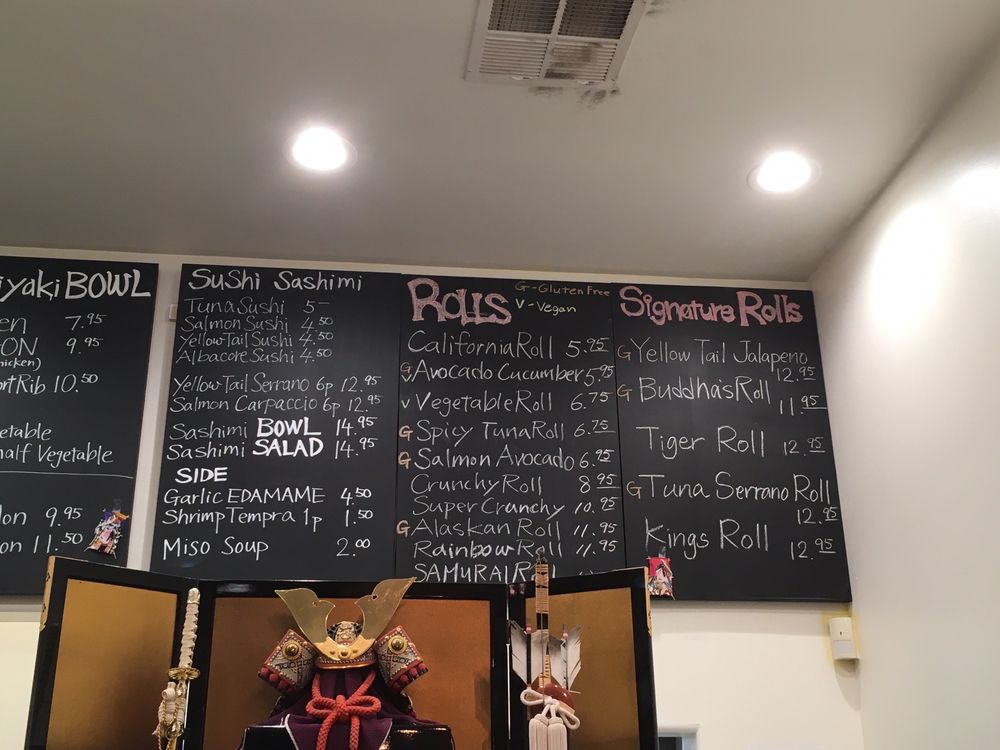 BOWL
7.95
ON 9.95
Rib 10.50
Vegetable
9.95
11.50
SuShi Sashimi
Tuna Sushi 5-
Salmon Sushi 4.50
Yellow Tail Sushi 4.50
Albacore Sushi 4.50
Yellow Tail Serrano 6p 12.95
Salmon Carpaccio 6p 12.95
Sashimi BOWL 14.95
Sashimi SALAD 14.95
SIDE
Garlic EDAMAME 4.50
Shrimp Tempra 1p 1.50
Miso Soup 2.00
ROLLS
G-Gluten Free
V-Vegan
California Roll 5.95
G V Avocado Cucumber 5.95
V Vegetable Roll 6.75
G Spicy Tuna Roll 6.75
G Salmon Avocado 6.95
Crunchy Roll 8.95
Super Crunchy 10.95
G Alaskan Roll 11.95
Rainbow Roll 11.95
SAMURAI
Signature Rolls
G Yellow Tail Jalapeno
12.95
G Buddha's Roll
11.95
Tiger Roll 12.95
G Tuna Serrano Roll
12.95
Kings Roll 12.95